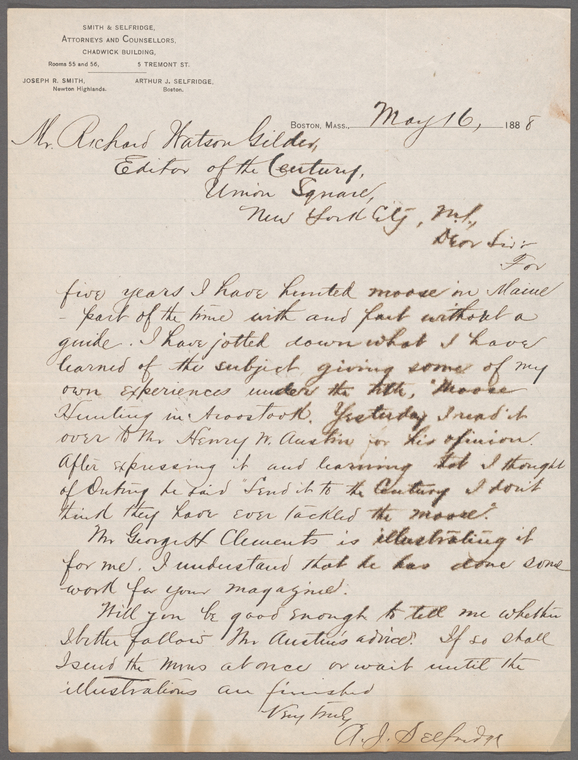 SMITH & SELFRIDGE,
ATTORNEYS AND COUNSELLORS,
CHADWICK BUILDING,
Rooms 55 and 56, 5 TREMONT ST.
JOSEPH R. SMITH, ARTHUR J. SELFRIDGE,
Newton Highlands. Boston.
BOSTON, MASS., May 16, 1888
Mr. Richard Watson Gilder,
Editor of the Century,
Union Square,
New York City, N.Y.,
Dear Sir:
For
five years I have hunted moose in Maine
- part of the time with and part without a
guide. I have jotted down what I have
learned of the subject, giving some of my
own experiences under the title, "Moose
Hunting in Aroostook. Yesterday I read it
over to Mr Henry W. Austin for his opinion.
After expressing it and learning that I thought
of Outing he said "Send it to the Century I don't
think they have ever tackled the moose".
Mr George H Clements is illustrating it
for me. I understand that he has done some
work for your magazine.
Will you be good enough to tell me whether
I better follow Mr Austin's advice? If so shall
I send the mms at once or wait until the
illustrations are finished
Very truly
A. J. Selfridge